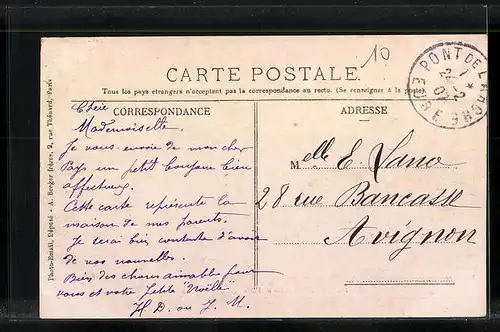 10
CARTE POSTALE
Tous les pays étrangers n'acceptent pas la correspondance au recto. (Se renseigner à la poste).
CORRESPONDANCE
Chère
Mademoiselle
Je vous envoie de mon cher
Pays un petit bonjour bien
affectueux.
Cette carte représente la
maison de mes parents.
Je serai bien contente d'avoir
de vos nouvelles.
Bien des choses aimables pour
vous et votre petite
H. D. ou J. M.
ADRESSE
Melle E. Lano
28 rue Bancasse
Avignon
PONT DE L'ARCHE
EURE
Photo-Émail, Déposé - A. Berger frères, 9, rue Thénard, Paris